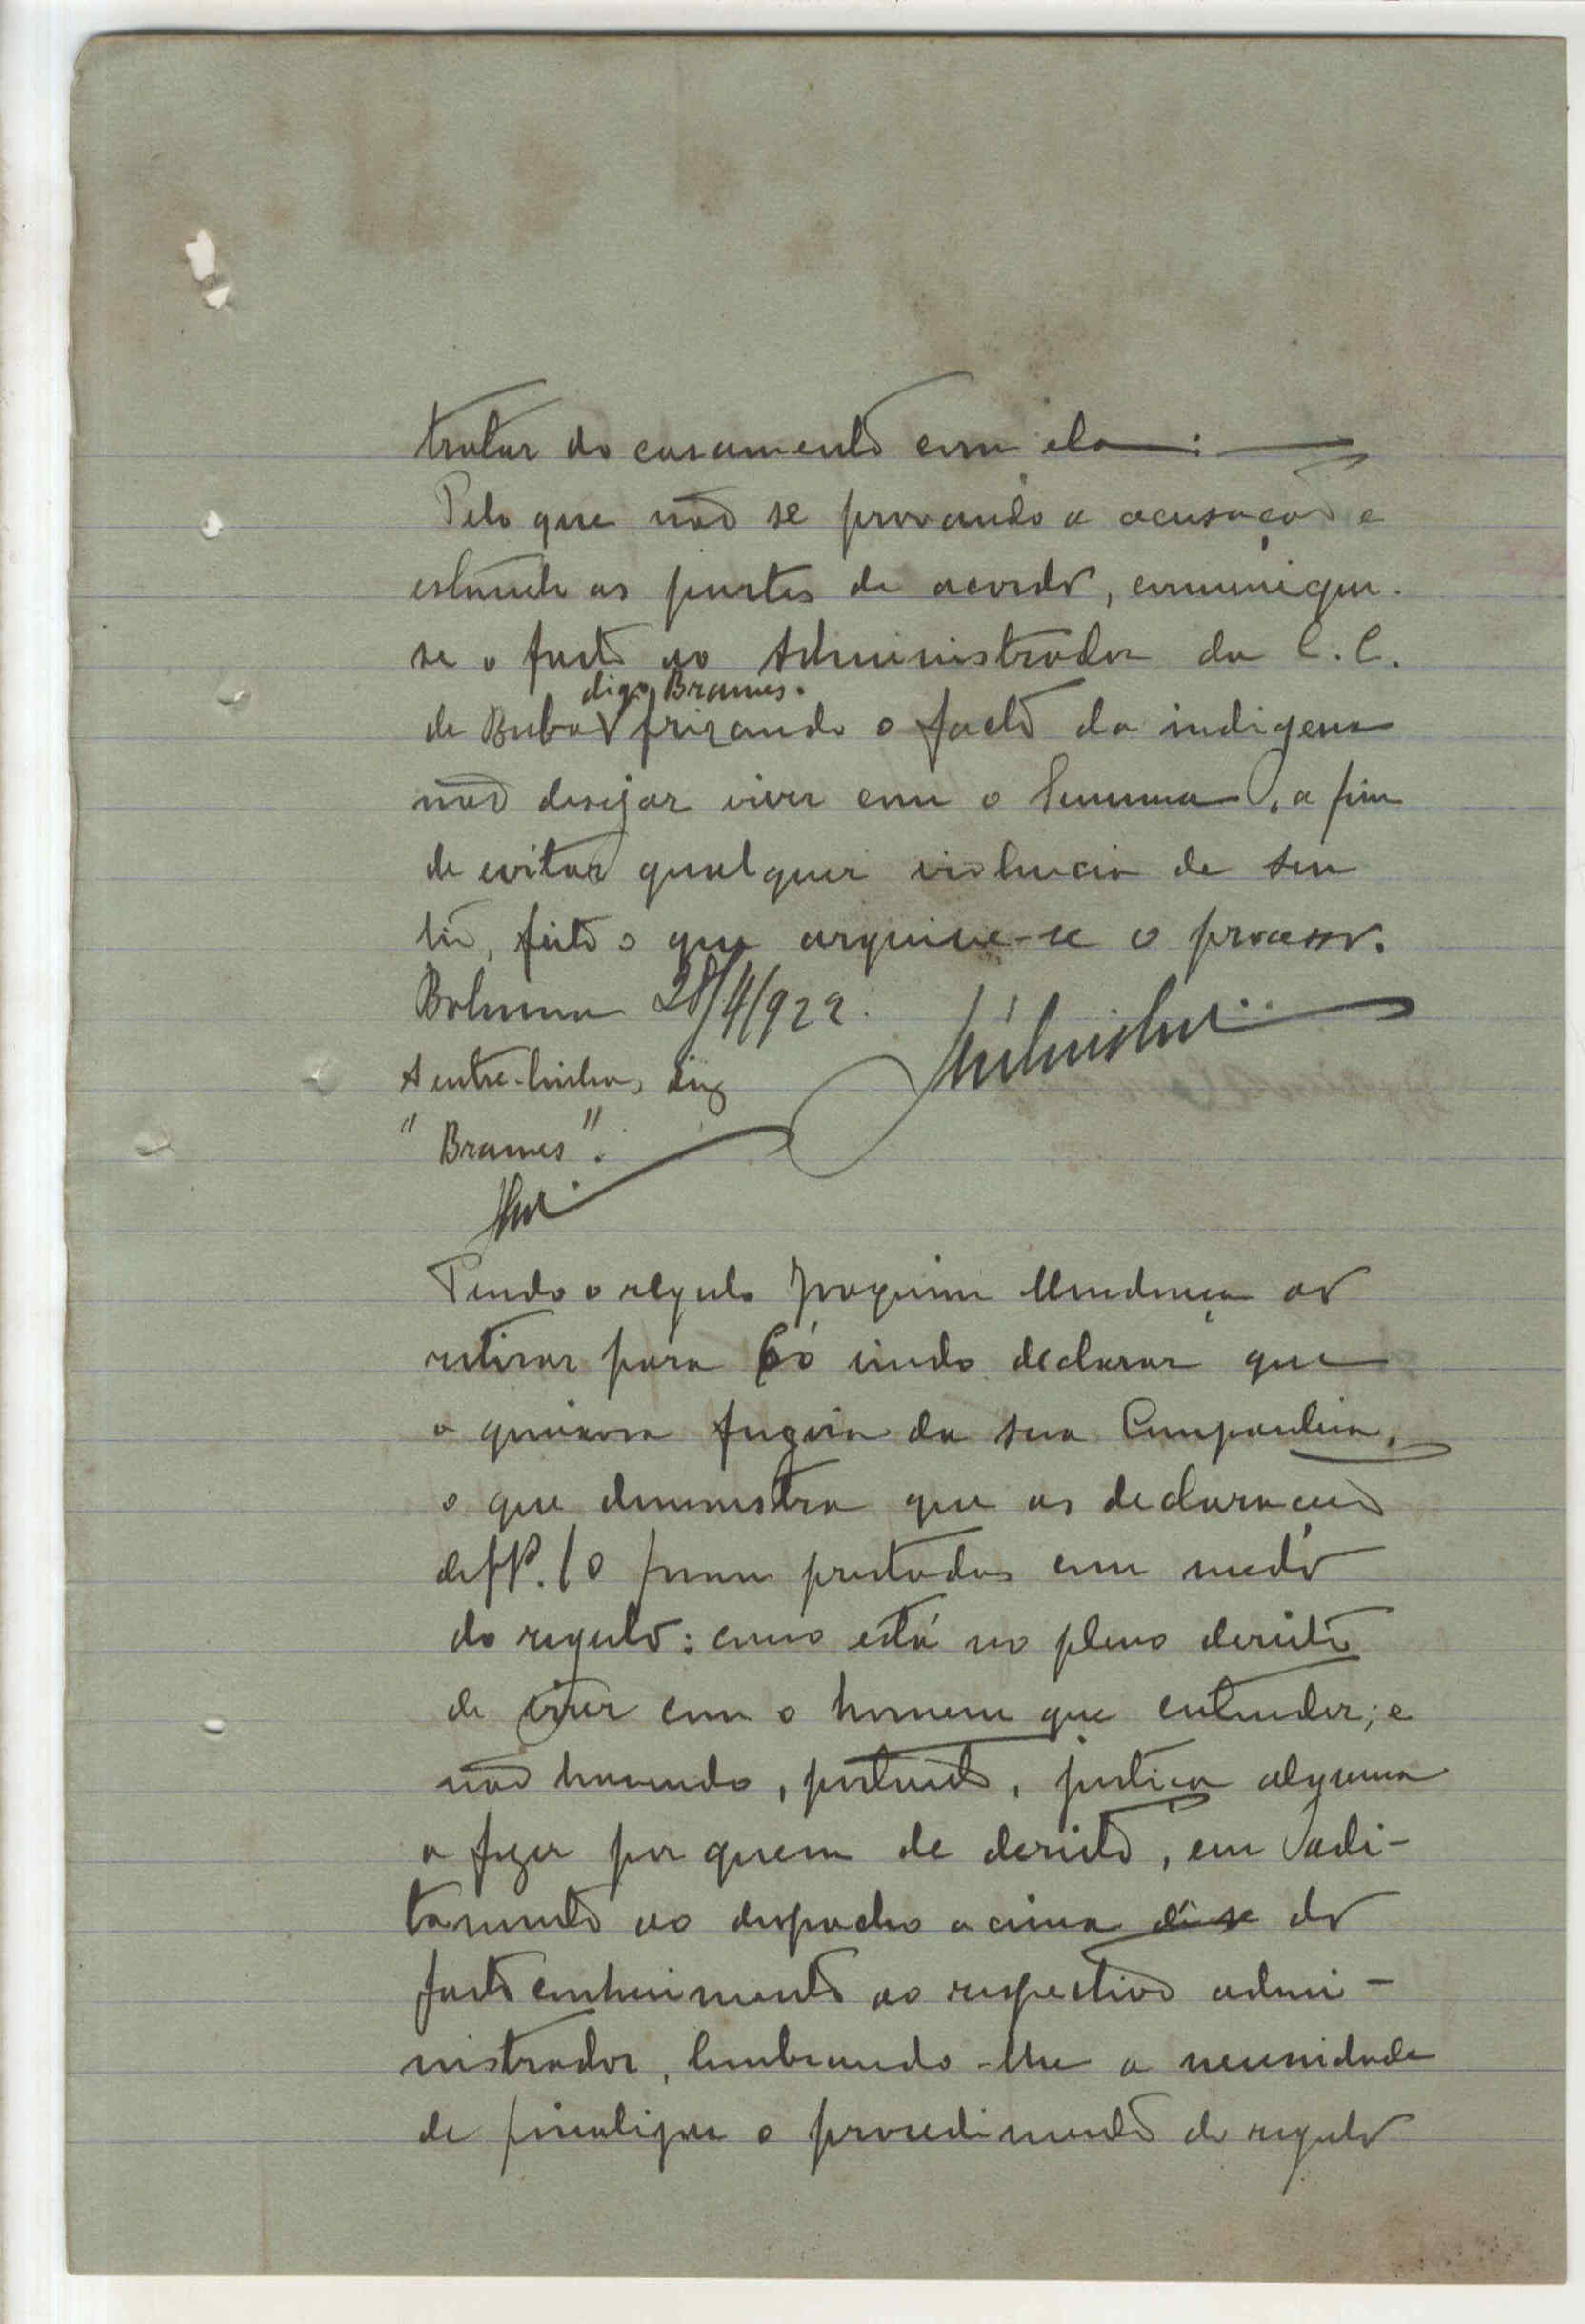 tratar do casamento com ela.
Pelo que não se provando a acusação e
estando as partes de acordo, comunique-
se o facto ao Administrador da C. C.
digo, Brames.
de Buba frizando o facto da indigena
não desejar viver com o , a fim
de evitar qualquer violencia de seu
tio, feito o que arquive-se o processo.
Bolama 28/4/922.
A entre-linha, diz
"Brames".
Tendo o regulo Joaquim Mendonça ao
retirar para Có vindo declarar que
a queixosa fugira da sua Companhia,
o que demonstra que as declarações
de fls. 10 foram prestadas com medo
do regulo: como está no pleno direito
de viver com o homem que entender; e
não havendo, portanto, justiça alguma
a fazer por quem de direito, em adi-
tamento ao despacho acima dê-se do
facto conhecimento ao respectivo admi-
nistrador, lembrando-lhe a necessidade
de o procedimento do regulo